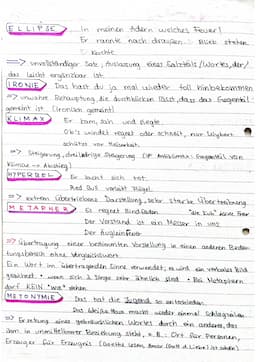 ELLIPSE In meinen Adern welches Feuer!
Er rannte nach draußen. Blieb stehen.
Lachte.
=> unvollständiger Satz, Auslassung eines Satzteils/Wortes, der/
das leicht ergänzbar ist
IRONIE Das hast du ja mal wieder toll hinbekommen
=> unwahre Behauptung, die durchblicken lässt, dass das Gegenteil
gemeint ist (ironisch gemeint)
KLIMAX Er kam, sah und siegte.
Ob's windet, regnet oder schneit, nur
schützt vor Heiserkeit.
=> Steigerung, dreiteilige Steigerung (Antiklimax: Gegenteil von
Klimax -> Abstieg)
HYPERBEL Er lacht sich tot.
Red Bull verleiht Flügel.
=> extrem übertriebene Darstellung, sehr starke Übertreibung
METAPHER Es regnet Bindfäden
Der Verstand ist ein Messer in uns
Der Augleinfluss
=> Übertragung einer bestimmten Vorstellung in einen anderen Bedeu-
tungsbereich ohne Vergleichswort.
Ein Wort im übertragenden Sinne verwendet, es wird ein verbales Bild
gesucht * wenn sich 2 Dinge sehr ähnlich sind * Bei Metaphern
darf KEIN "wie" stehen
METONYMIE Das hat die Jugend so entschieden.
Das Weiße Haus macht wieder einmal Schlagzeilen
=> Ersetzung eines gebräuchlichen Wortes durch ein anderes, das
dem in unmittelbarer Beziehung steht, z.B.: Ort für Personen,
Erzeuger für Erzeugnis (Goethe lesen,